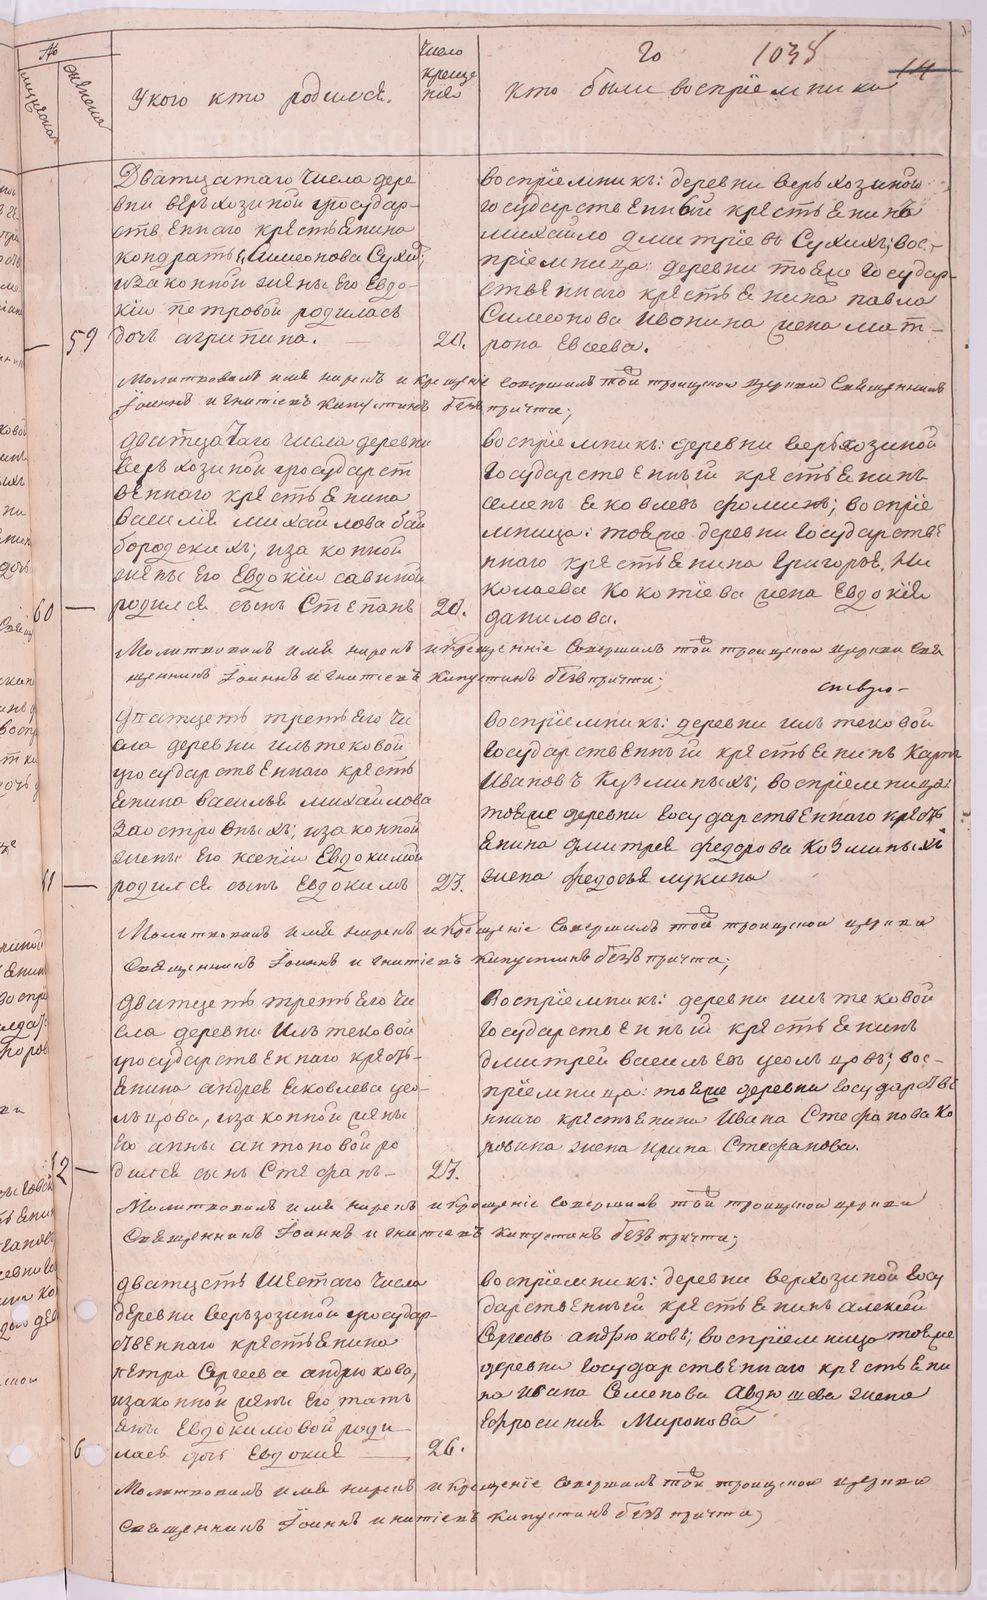 №
мужеска
женска
У кого кто родился.
Число
креще
ния
го 1035
14
Кто были воспрїемники
Дватцатаго Числа дере
вни верьхозиной государ-
ственнаго крестьенина
кондратья Симеонова Сухих;
изаконной жены Его Евдо-
кїи петровой родилась
59 дочь агрипина. 20.
воспрїемникъ: деревни верьхозиной
государственный крестьенинъ
михайло дмитрїевъ Сухихъ; вос-
прїемница: деревни тоеже государ-
ственнаго крестьенина павла
Симеонова Ивонина жена мат-
рона Евсеева.
Молитвовалъ имя нарекъ и крещенїе совершалъ той троицкой церкви Священникъ
Їоаннъ игнатїевъ капустинъ безъ причта;
дватцатаго числа деревни
верьхозиной государст
веннаго крестьенина
василїя михайлова бай
бородскихъ; изаконной
жены Его Евдокїи савиной
60 родился сынъ Степанъ 20.
воспрїемникъ: деревни верьхозиной
государственный крестьенинъ
семенъ яковлевъ фоминъ; воспрїе
мница: тоеже деревни государстве
ннаго крестьенина григорья Ни
колаева Кокотїева жена Евдокїя
данилова.
Молитвовалъ имя нарекъ и крещенїе совершалъ той троицкой церкви Свя
щенникъ Їоаннъ игнатїевъ капустинъ безъ причта;
дватцеть третьего чи
сла деревни ильтековой
государственнаго кресть
енина василья михайлова
Заостровныхъ; изаконной
жены его ксенїи Евдокимой
родился сынъ Евдокимъ 23.
воспрїемникъ: деревни ильтековой
государственный крестьенинъ Карпъ
Ивановъ Кузминыхъ; воспрїемница:
тоеже деревни государственнаго кресть
енина дмитрея федорова Козминыхъ
жена федосья лукина
Молитвовалъ имя нарекъ и крещенїе совершалъ той троицкой церкви
Священникъ Їоаннъ игнатїевъ капустинъ безъ причта;
дватцеть третьего чи
сла деревни Ильтековой
государственнаго кресть-
енина андрея яковлева усо-
льцова, изаконной жены
Его анны антоновой ро
дился сынъ Стефанъ 23.
воспрїемникъ: деревни ильтековой
государственный крестьенинъ
дмитрей васильевъ усольцовъ; вос-
прїемница: тоеже деревни государстве
ннаго крестьенина Ивана Стефанова Ко
ровина жена ирина Стефанова.
Молитвовалъ имя нарекъ и крещенїе совершалъ той троицкой церкви
Священникъ Їоаннъ игнатїевъ капустинъ безъ причта;
дватцеть шестаго числа
деревни верьхозиной государ-
ственнаго крестьенина
петра Сергеева андрюкова,
изаконной жены Его, тать
яны Евдокимовой роди
лась дочь Евдокия 26.
воспрїемникъ: деревни верхозиной госу
дарственный крестьенинъ алексей
Сергеевъ андрюковъ; воспрїемница тоеже
деревни государственнаго крестьени
на ивана Семенова Авдюшева жена
Ефросиния Миронова
Молитвовалъ имя нарекъ и крещенїе совершалъ той троицкой церкви
Священникъ Їоаннъ игнатїевъ капустинъ безъ причта;
METRIKI.GASO-URAL.RU